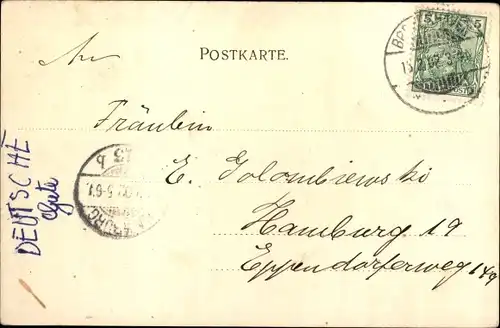 POSTKARTE.
An
Fräulein
E. Golombiewski
Hamburg 19
Eppendorferweg 149
DEUTSCHE
Güte
5 5